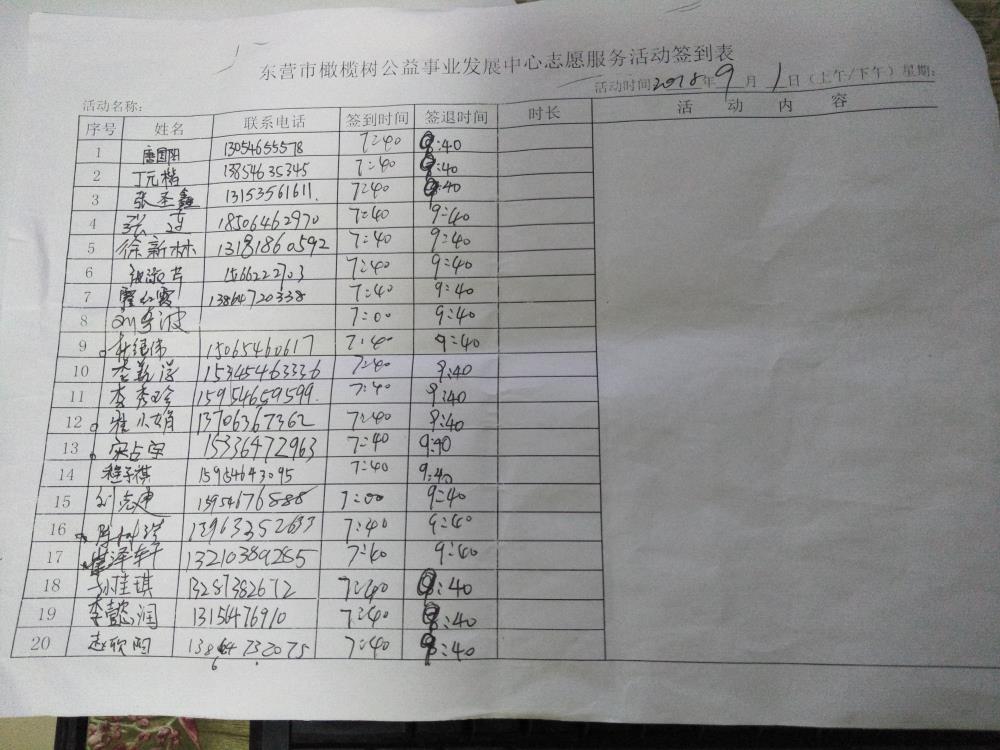 东营市橄榄树公益事业发展中心志愿服务活动签到表
活动时间2018年9月1日(上午/下午)星期:
活动名称:
序号 姓名 联系电话 签到时间 签退时间 时长 活动内容
1 唐国阳 13054655578 7:40 9:40
2 丁元楷 13854635345 7:40 9:40
3 张丕鑫 13153561611. 7:40 9:40
4 张 18506462970 7:40 9:40
5 徐新林 13181860592 7:40 9:40
6 1566222703 7:40 9:40
7 13864720338 7:40 9:40
8 7:00 9:40
9 15065460617 7:40 9:40
10 15345463336 7:40 9:40
11 李秀珍 15954659599. 7:40 9:40
12 崔小娟 13706367362 7:40 9:40
13 宋占宇 15336472963 7:40 9:40
14 程子祺 15954643095 7:40 9:40
15 刘克建 15954676888 7:00 9:40
16 7:40 9:40
17 13210389285 7:40 9:40
18 孙佳琪 13287382672 7:40 9:40
19 李懿润 13156476910 7:40 9:40
20 赵欣阳 7:40 9:40